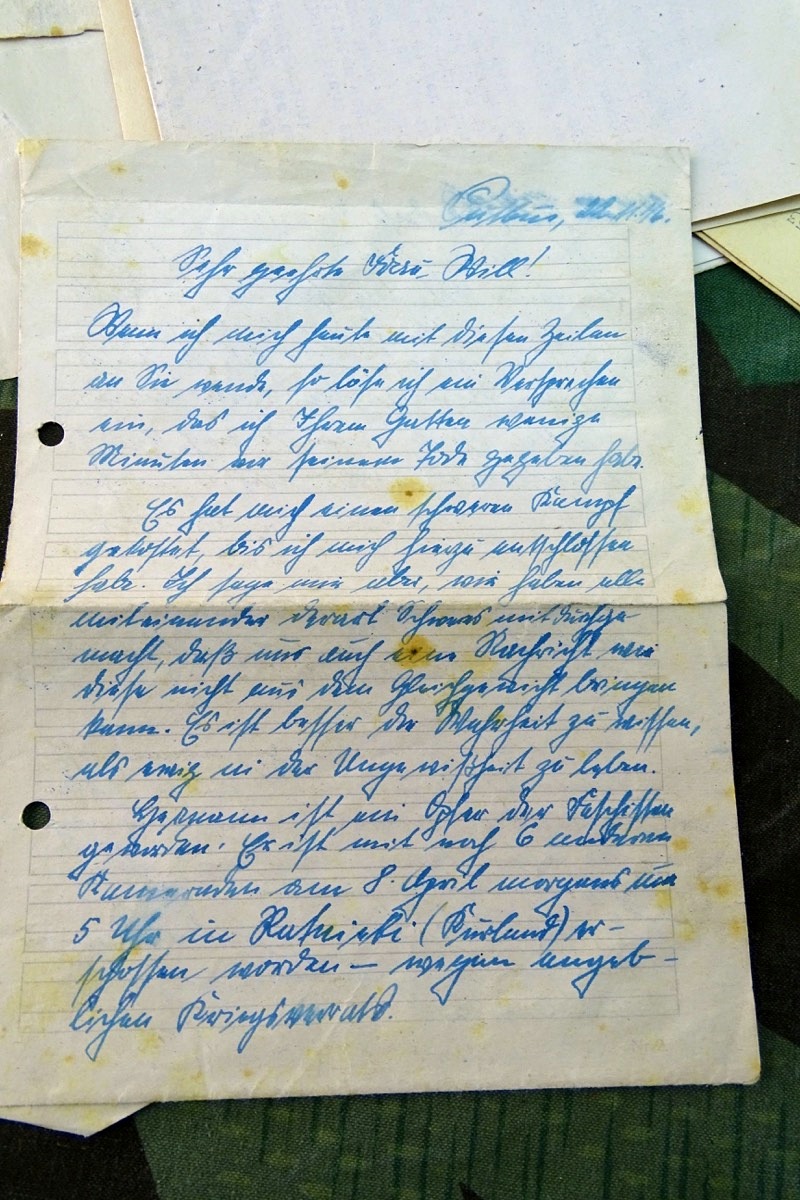 Sehr geehrte Frau Will!
Wenn ich mich heute mit diesen Zeilen
an Sie wende, so löse ich ein Versprechen
ein, das ich Ihrem Gatten wenige
Minuten vor seinem Tode gegeben habe.
Es hat mich einen schweren Kampf
gekostet, bis ich mich hierzu entschlossen
habe. Ich sage mir aber, wir haben alle
miteinander derart Schweres mit durchge-
macht, daß uns auch eine Nachricht wie
diese nicht aus dem Gleichgewicht bringen
kann. Es ist besser die Wahrheit zu wissen,
als ewig in der Ungewißheit zu leben.
Hermann ist ein Opfer der Faschisten
geworden. Er ist mit noch 6 anderen
Kameraden am 8. April morgens um
5 Uhr in Ratnieki (Kurland) er-
schossen worden — wegen angeb-
lichen Kriegsverrats.